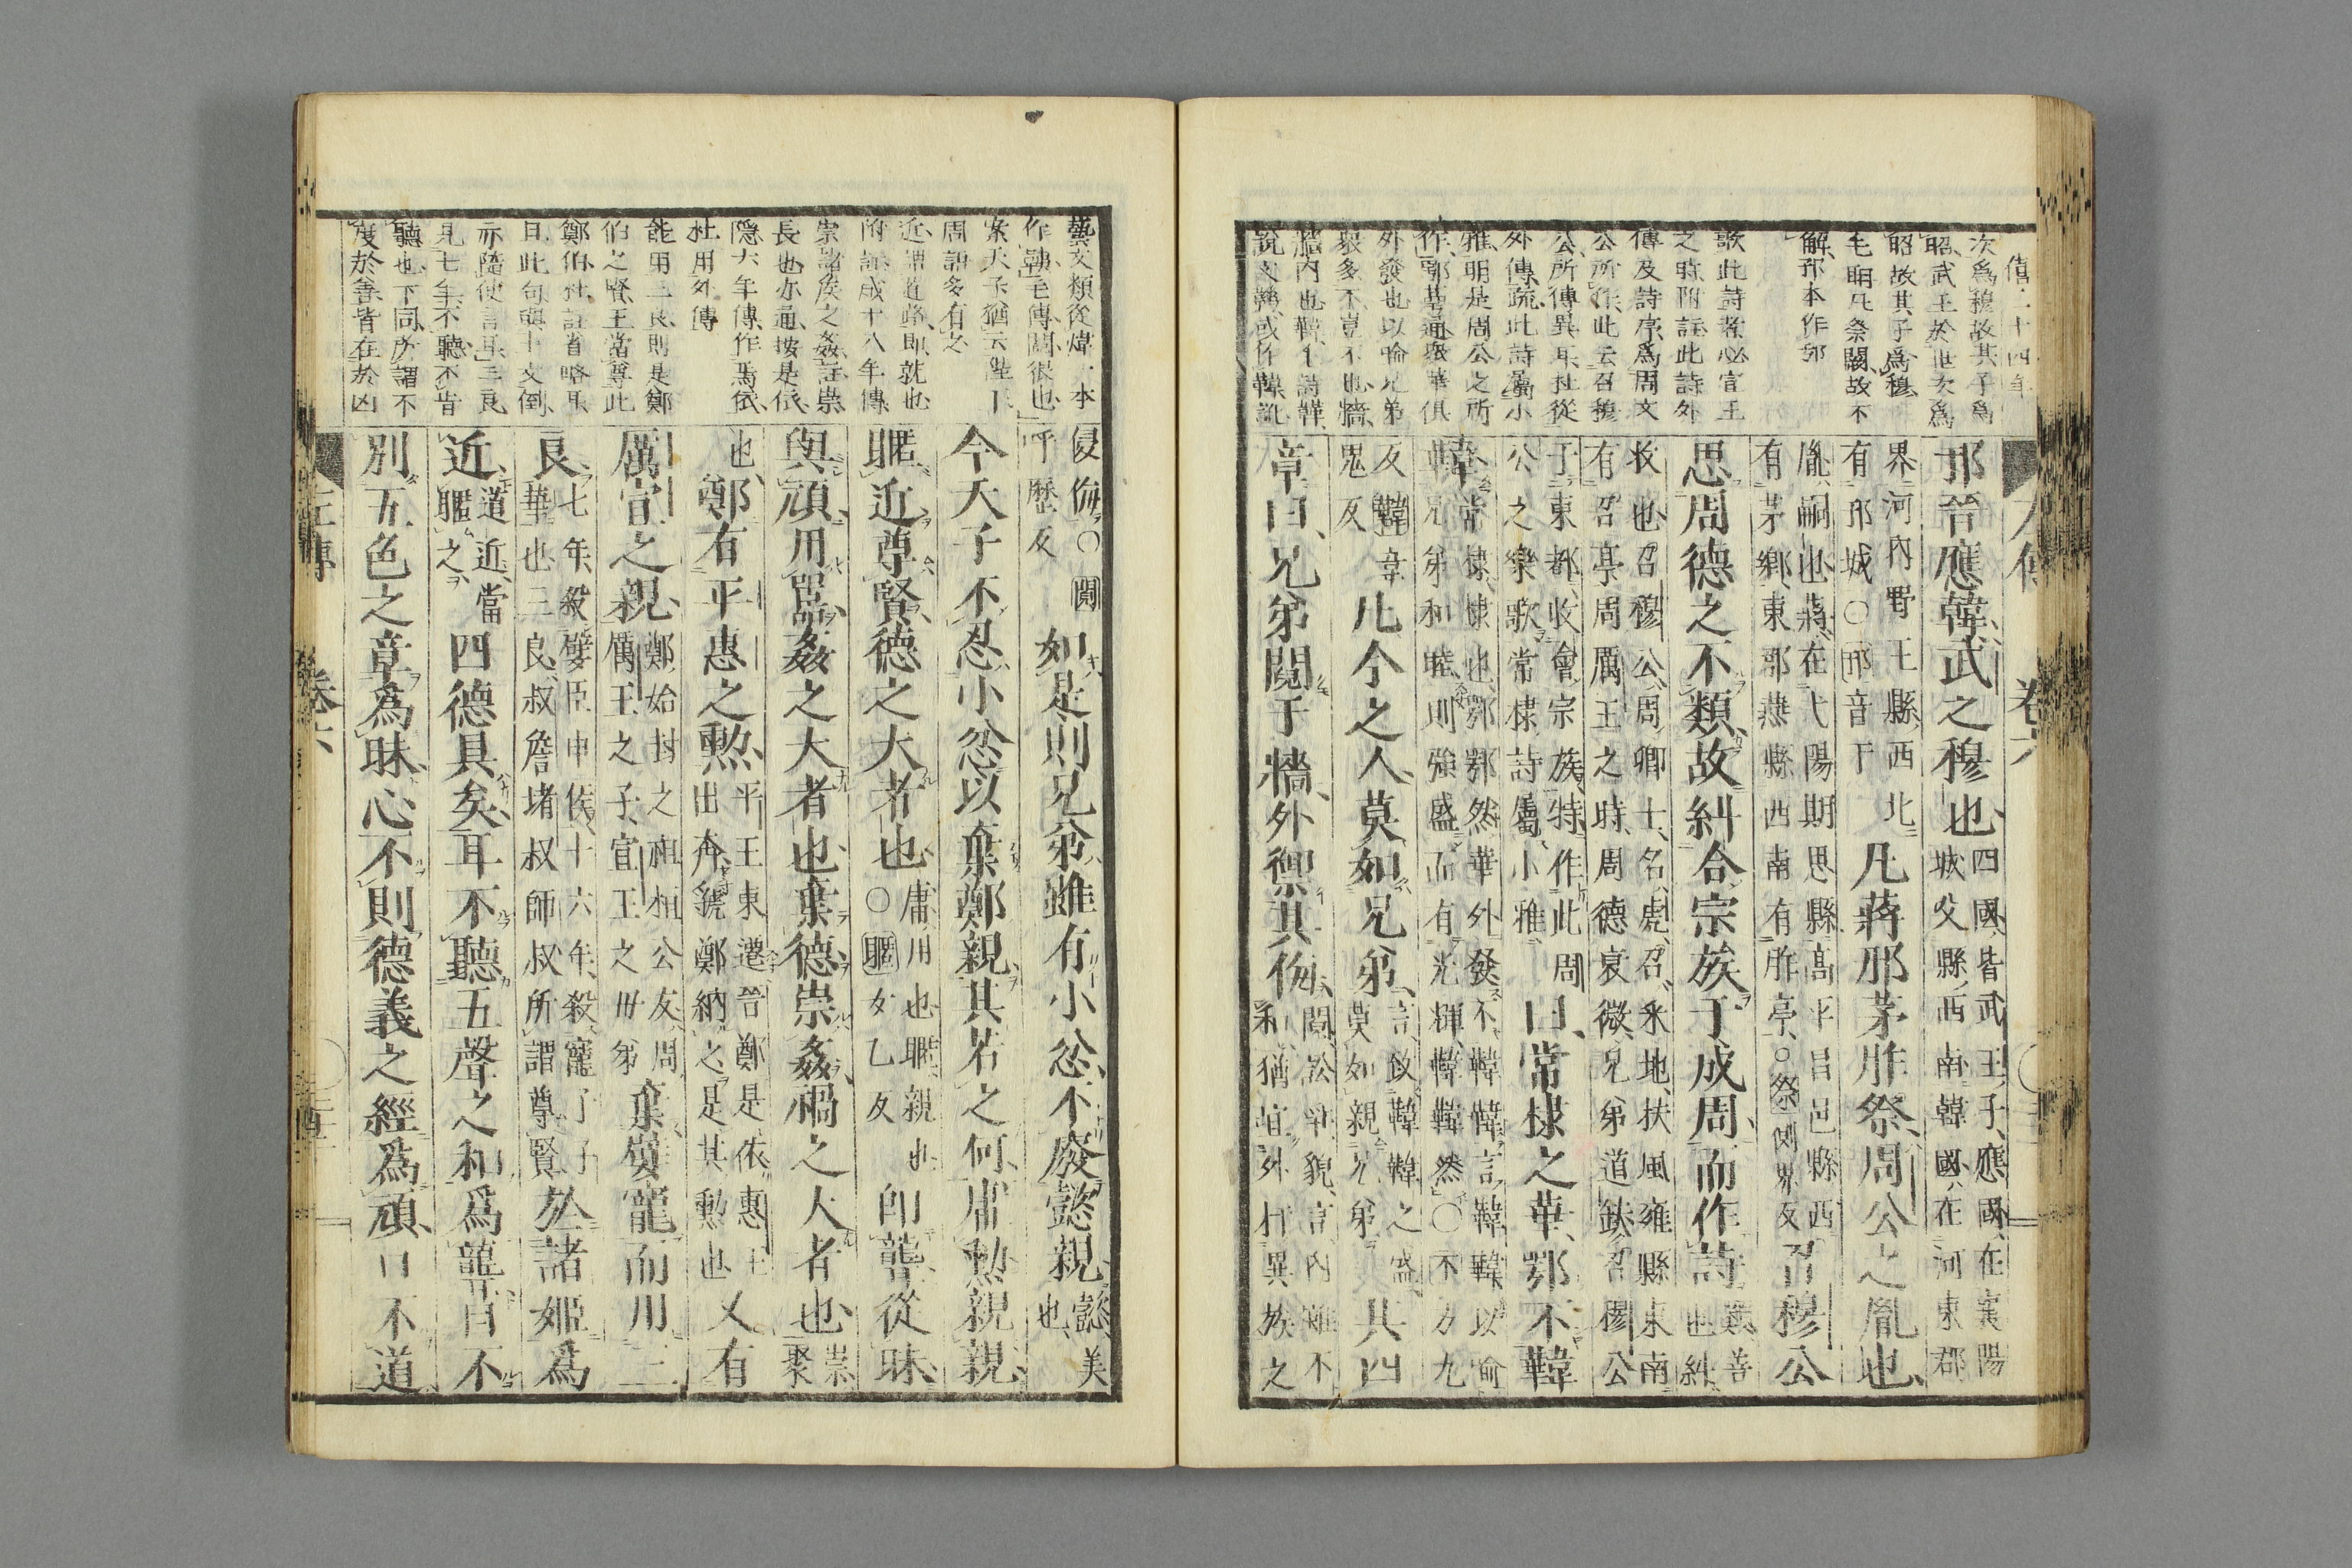 僖二十四年
次爲穆故其子爲
昭武王於世次爲
昭故其子爲穆
毛聃凡祭闕故不
解邘本作邗
歌此詩者必宣王
之時附註此詩外
傳及詩序爲周文
公所作此云召穆
公所傳異耳杜從
外傳疏此詩屬小
雅明是周公之所
作鄂萼通衆華俱
外發也以喻兄弟
衆多不豈不也牆
牆内也韡
説文韡或作韡訛
左傳 卷六
邘晉應韓武之穆也四國皆武王子應國在襄陽城父縣西南韓國在河東郡
界河内野王縣西北有邘城○邘音于凡蔣邢茅胙祭周公之胤也
胤嗣也蔣在弋陽期思縣高平昌邑縣西有茅鄉東郡燕縣西南有胙亭○祭側界反召穆公
思周德之不類故糾合宗族于成周而作詩類善也糾
收也召穆公周卿士名虎召采地扶風雍縣東南有召亭周厲王之時周德衰微兄弟道缺召穆公
于東都收會宗族特作此周公之樂歌常棣詩屬小雅曰常棣之華鄂不韡
韡常棣棣也鄂鄂然華外發不韡韡言韡韡以喻兄弟和睦則強盛而有光輝韡韡然○不方九
反韡韋鬼反凡今之人莫如兄弟言致韡韡之盛莫如親兄弟其四
章曰兄弟鬩于牆外禦其侮鬩訟爭貌言内雖不和猶宜外扞異族之
藝文類從煒一本
作韡毛傳鬩很也
案天子猶云陛下
周語多有之
近謂近路即就也
附註成十八年傳
崇諸侯之姦註崇
長也亦通按是依
隱六年傳作焉依
杜用外傳
能用三良則是鄭
伯之賢王當尊此
鄭伯杜註省略耳
且此句與十文倒
亦隨使言耳三良
見七年不聽不肯
聽也下同所謂不
度於善皆在於凶
侵侮○鬩呼歷反如是則兄弟雖有小忿不廢懿親懿美也
今天子不忍小忿以棄鄭親其若之何庸勲親親
暱近尊賢德之大者也庸用也暱親也○暱女乙反即聾從昧
與頑用嚚姦之大者也棄德崇姦禍之大者也崇聚
也鄭有平惠之勲平王東遷晉鄭是依惠王出奔虢鄭納之是其勳也又有
厲宣之親鄭始封之祖桓公友周厲王之子宣王之母弟棄嬖寵而用三
良七年殺嬖臣申侯十六年殺寵子子華也三良叔詹堵叔師叔所謂尊賢於諸姬爲
近道近當暱之四德具矣耳不聽五聲之和爲聾目不
別五色之章爲昧心不則德義之經爲頑口不道
左傳 卷六